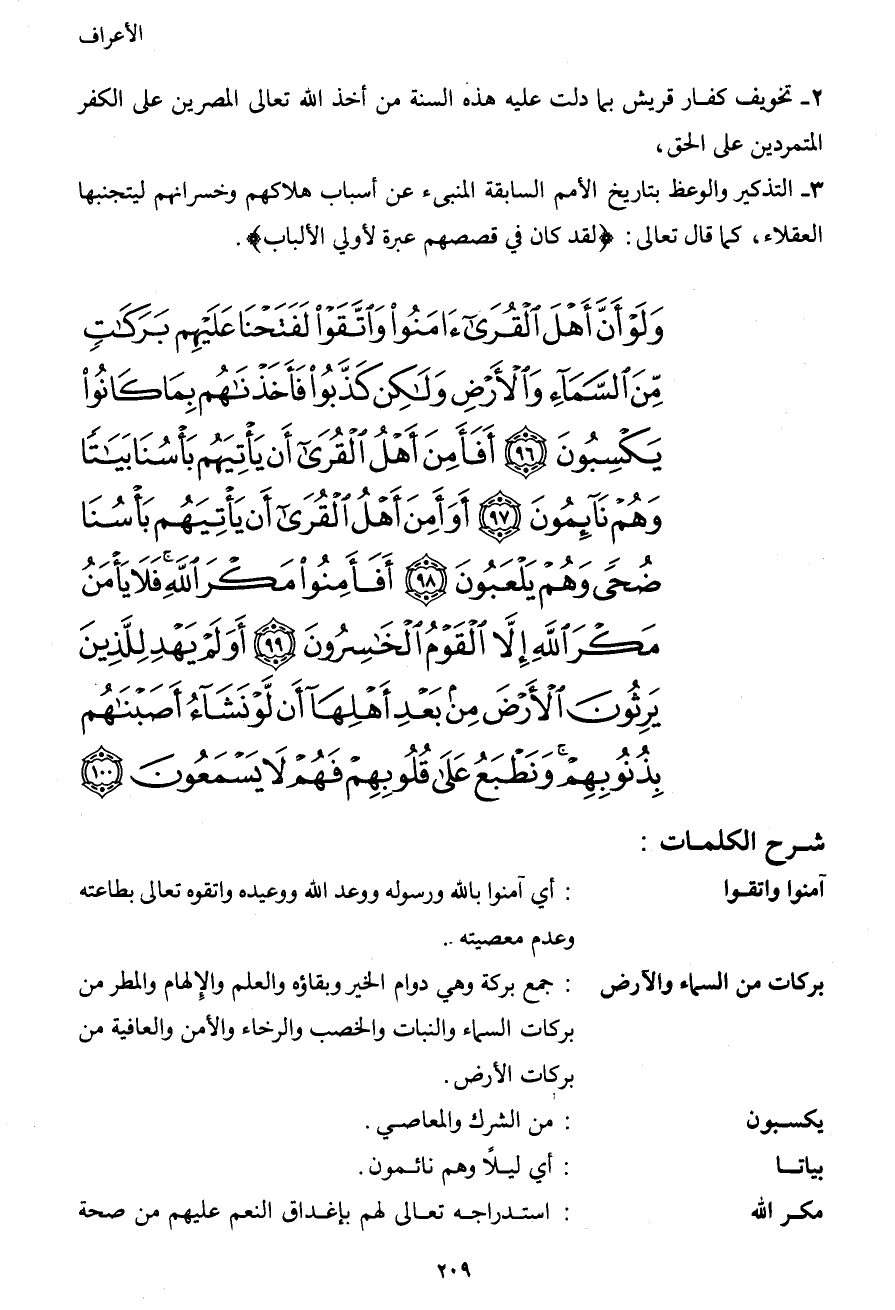 الأعراف
٢ـ تخويف كفار قريش بما دلت عليه هذه السنة من أخذ الله تعالى المصرين على الكفر
المتمردين على الحق،
٣ـ التذكير والوعظ بتاريخ الأمم السابقة المنبىء عن أسباب هلاكهم وخسرانهم ليتجنبها
العقلاء، كما قال تعالى: ﴿لقد كان في قصصهم عبرة لأولي الألباب﴾.
وَلَوْ أَنَّ أَهْلَ ٱلْقُرَىٰٓ ءَامَنُوا۟ وَٱتَّقَوْا۟ لَفَتَحْنَا عَلَيْهِم بَرَكَٰتٍ
مِّنَ ٱلسَّمَآءِ وَٱلْأَرْضِ وَلَٰكِن كَذَّبُوا۟ فَأَخَذْنَٰهُم بِمَا كَانُوا۟
يَكْسِبُونَ ٩٦ أَفَأَمِنَ أَهْلُ ٱلْقُرَىٰٓ أَن يَأْتِيَهُم بَأْسُنَا بَيَٰتًا
وَهُمْ نَآئِمُونَ ٩٧ أَوَأَمِنَ أَهْلُ ٱلْقُرَىٰٓ أَن يَأْتِيَهُم بَأْسُنَا
ضُحًى وَهُمْ يَلْعَبُونَ ٩٨ أَفَأَمِنُوا۟ مَكْرَ ٱللَّهِ ۚ فَلَا يَأْمَنُ
مَكْرَ ٱللَّهِ إِلَّا ٱلْقَوْمُ ٱلْخَٰسِرُونَ ٩٩ أَوَلَمْ يَهْدِ لِلَّذِينَ
يَرِثُونَ ٱلْأَرْضَ مِنۢ بَعْدِ أَهْلِهَآ أَن لَّوْ نَشَآءُ أَصَبْنَٰهُم
بِذُنُوبِهِمْ ۚ وَنَطْبَعُ عَلَىٰ قُلُوبِهِمْ فَهُمْ لَا يَسْمَعُونَ ١٠٠
شرح الكلمات :
آمنوا واتقوا : أي آمنوا بالله ورسوله ووعد الله ووعيده واتقوه تعالى بطاعته
وعدم معصيته ..
بركات من السماء والأرض : جمع بركة وهي دوام الخير وبقاؤه والعلم والإلهام والمطر من
بركات السماء والنبات والخصب والرخاء والأمن والعافية من
بركات الأرض .
يكسبون : من الشرك والمعاصي .
بياتا : أي ليلًا وهم نائمون .
مكر الله : استدراجه تعالى لهم بإغداق النعم عليهم من صحة
٢٠٩